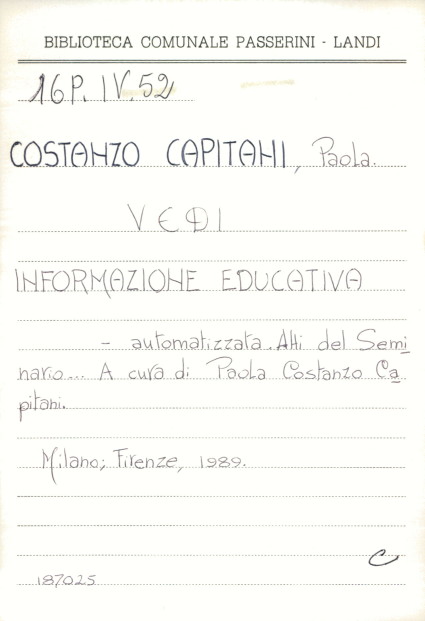 BIBLIOTECA COMUNALE PASSERINI - LANDI
16P. IV. 52
COSTANZO CAPITANI, Paola.
VEDI
INFORMAZIONE EDUCATIVA
- automatizzata. Atti del Semi
nario... A cura di Paola Costanzo Ca
pitani.
Milano; Firenze, 1989.
C
187025